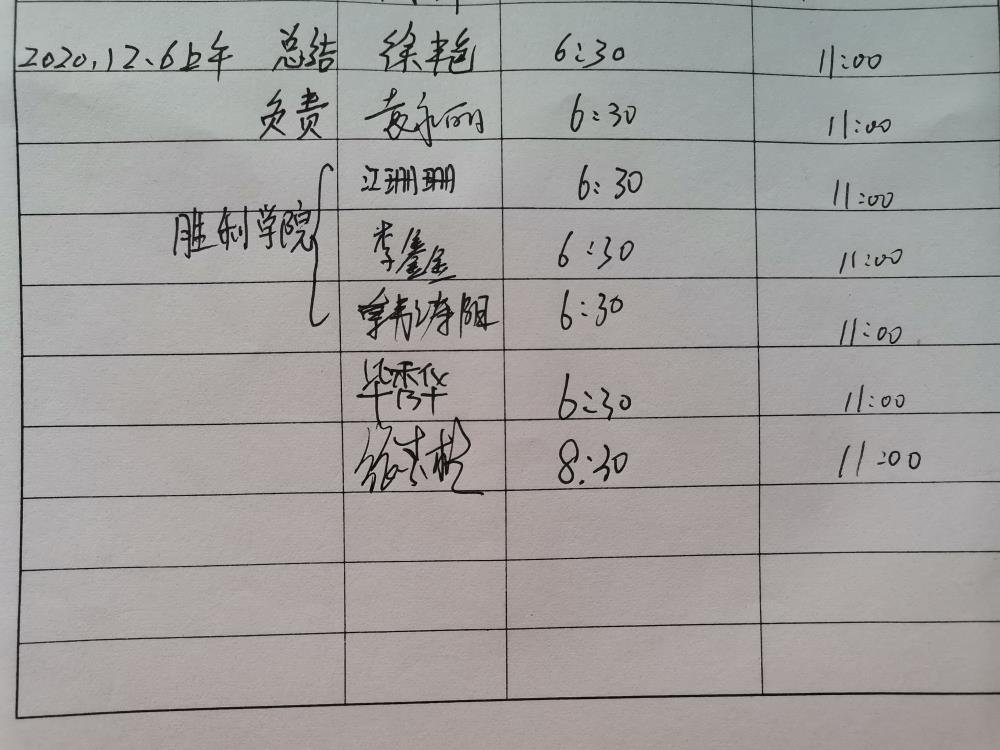 2020.12.6上午 总结 徐丰艳 6:30 11:00
负责 袁永丽 6:30 11:00
江珊珊 6:30 11:00
胜利学院 李鑫 6:30 11:00
韩春阳 6:30 11:00
毕秀华 6:30 11:00
徐 8:30 11:00